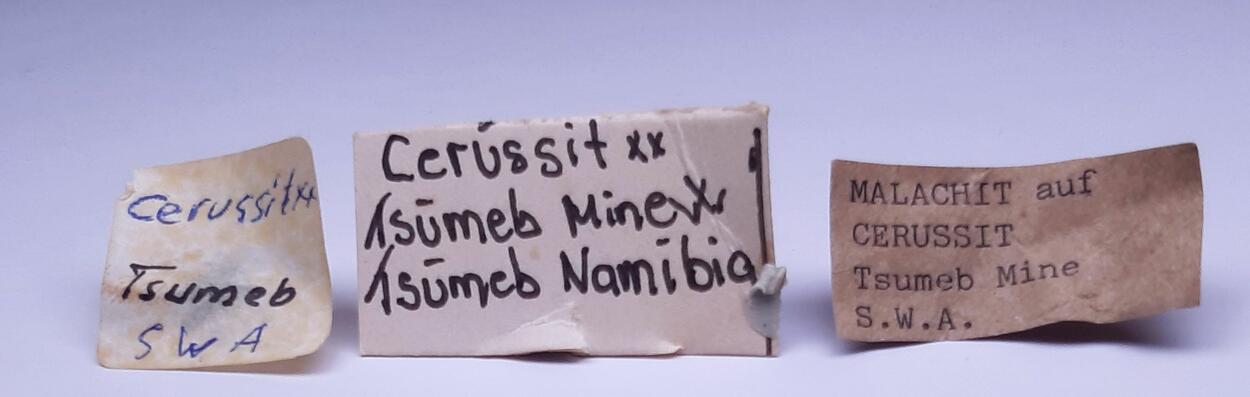 Cerussit xx
Tsumeb
S W A
Cerussit xx
Tsūmeb Mine
Tsūmeb Namibia
MALACHIT auf
CERUSSIT
Tsumeb Mine
S.W.A.